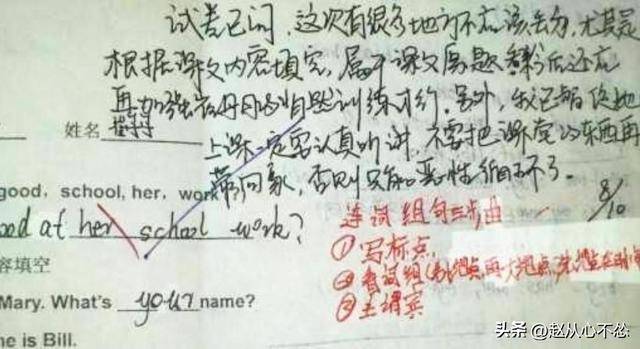 试卷已阅，这次有很多地方不应该丢分，尤其是
根据课文内容填空，属于课文原题 后还应
再加强 训练 另外，我已 
上课一定要认真听讲，不要把课堂的东西再
带回家，否则只能恶性循环了。
8/10
姓名
good, school, her, work
od at her school work?
连词组句三步曲
①写标点
②看词组(先 地点，再大地点，
③主谓宾
容填空
Mary. What's your name?
ne is Bill.
头条 @赵从心不怂